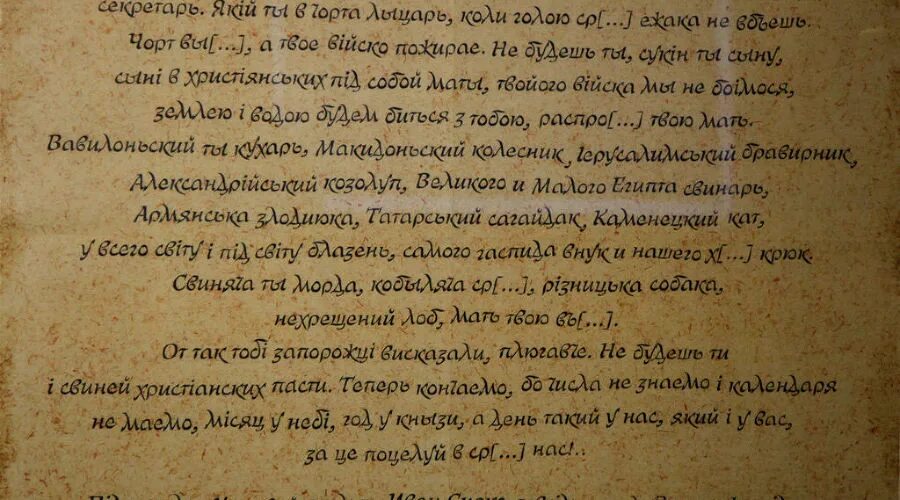 секретарь. Якій ты в чорта лыцарь, коли голою ср[...] ежака не вбъешь.
Чорт вы[...], а твое війско пожирае. Не будешь ты, сукін ты сыну,
сыні в христіянських під собой маты, твойого війска мы не боімося,
землею і водою будем биться з тобою, распро[...] твою мать.
Вавилоньский ты кухарь, Македоньский колесник, Ієрусалимський бравирник,
Александрійський козолуп, Великого и Малого Египта свинарь,
Армянська злодиюка, Татарський сагайдак, Каменецкий кат,
у всего світу і під світу блазень, самого гаспида внук и нашего х[...] крюк.
Свиняча ты морда, кобыляча ср[...], різницька собака,
нехрещений лоб, мать твою въ[...].
От так тобі запорожці висказали, плюгавче. Не будешь ти
і свиней христіанских пасти. Теперь кончаемо, бо числа не знаемо і календаря
не маемо, місяц у небі, год у кнызи, а день такий у нас, який і у вас,
за це поцелуй в ср[...] нас!..
Иван